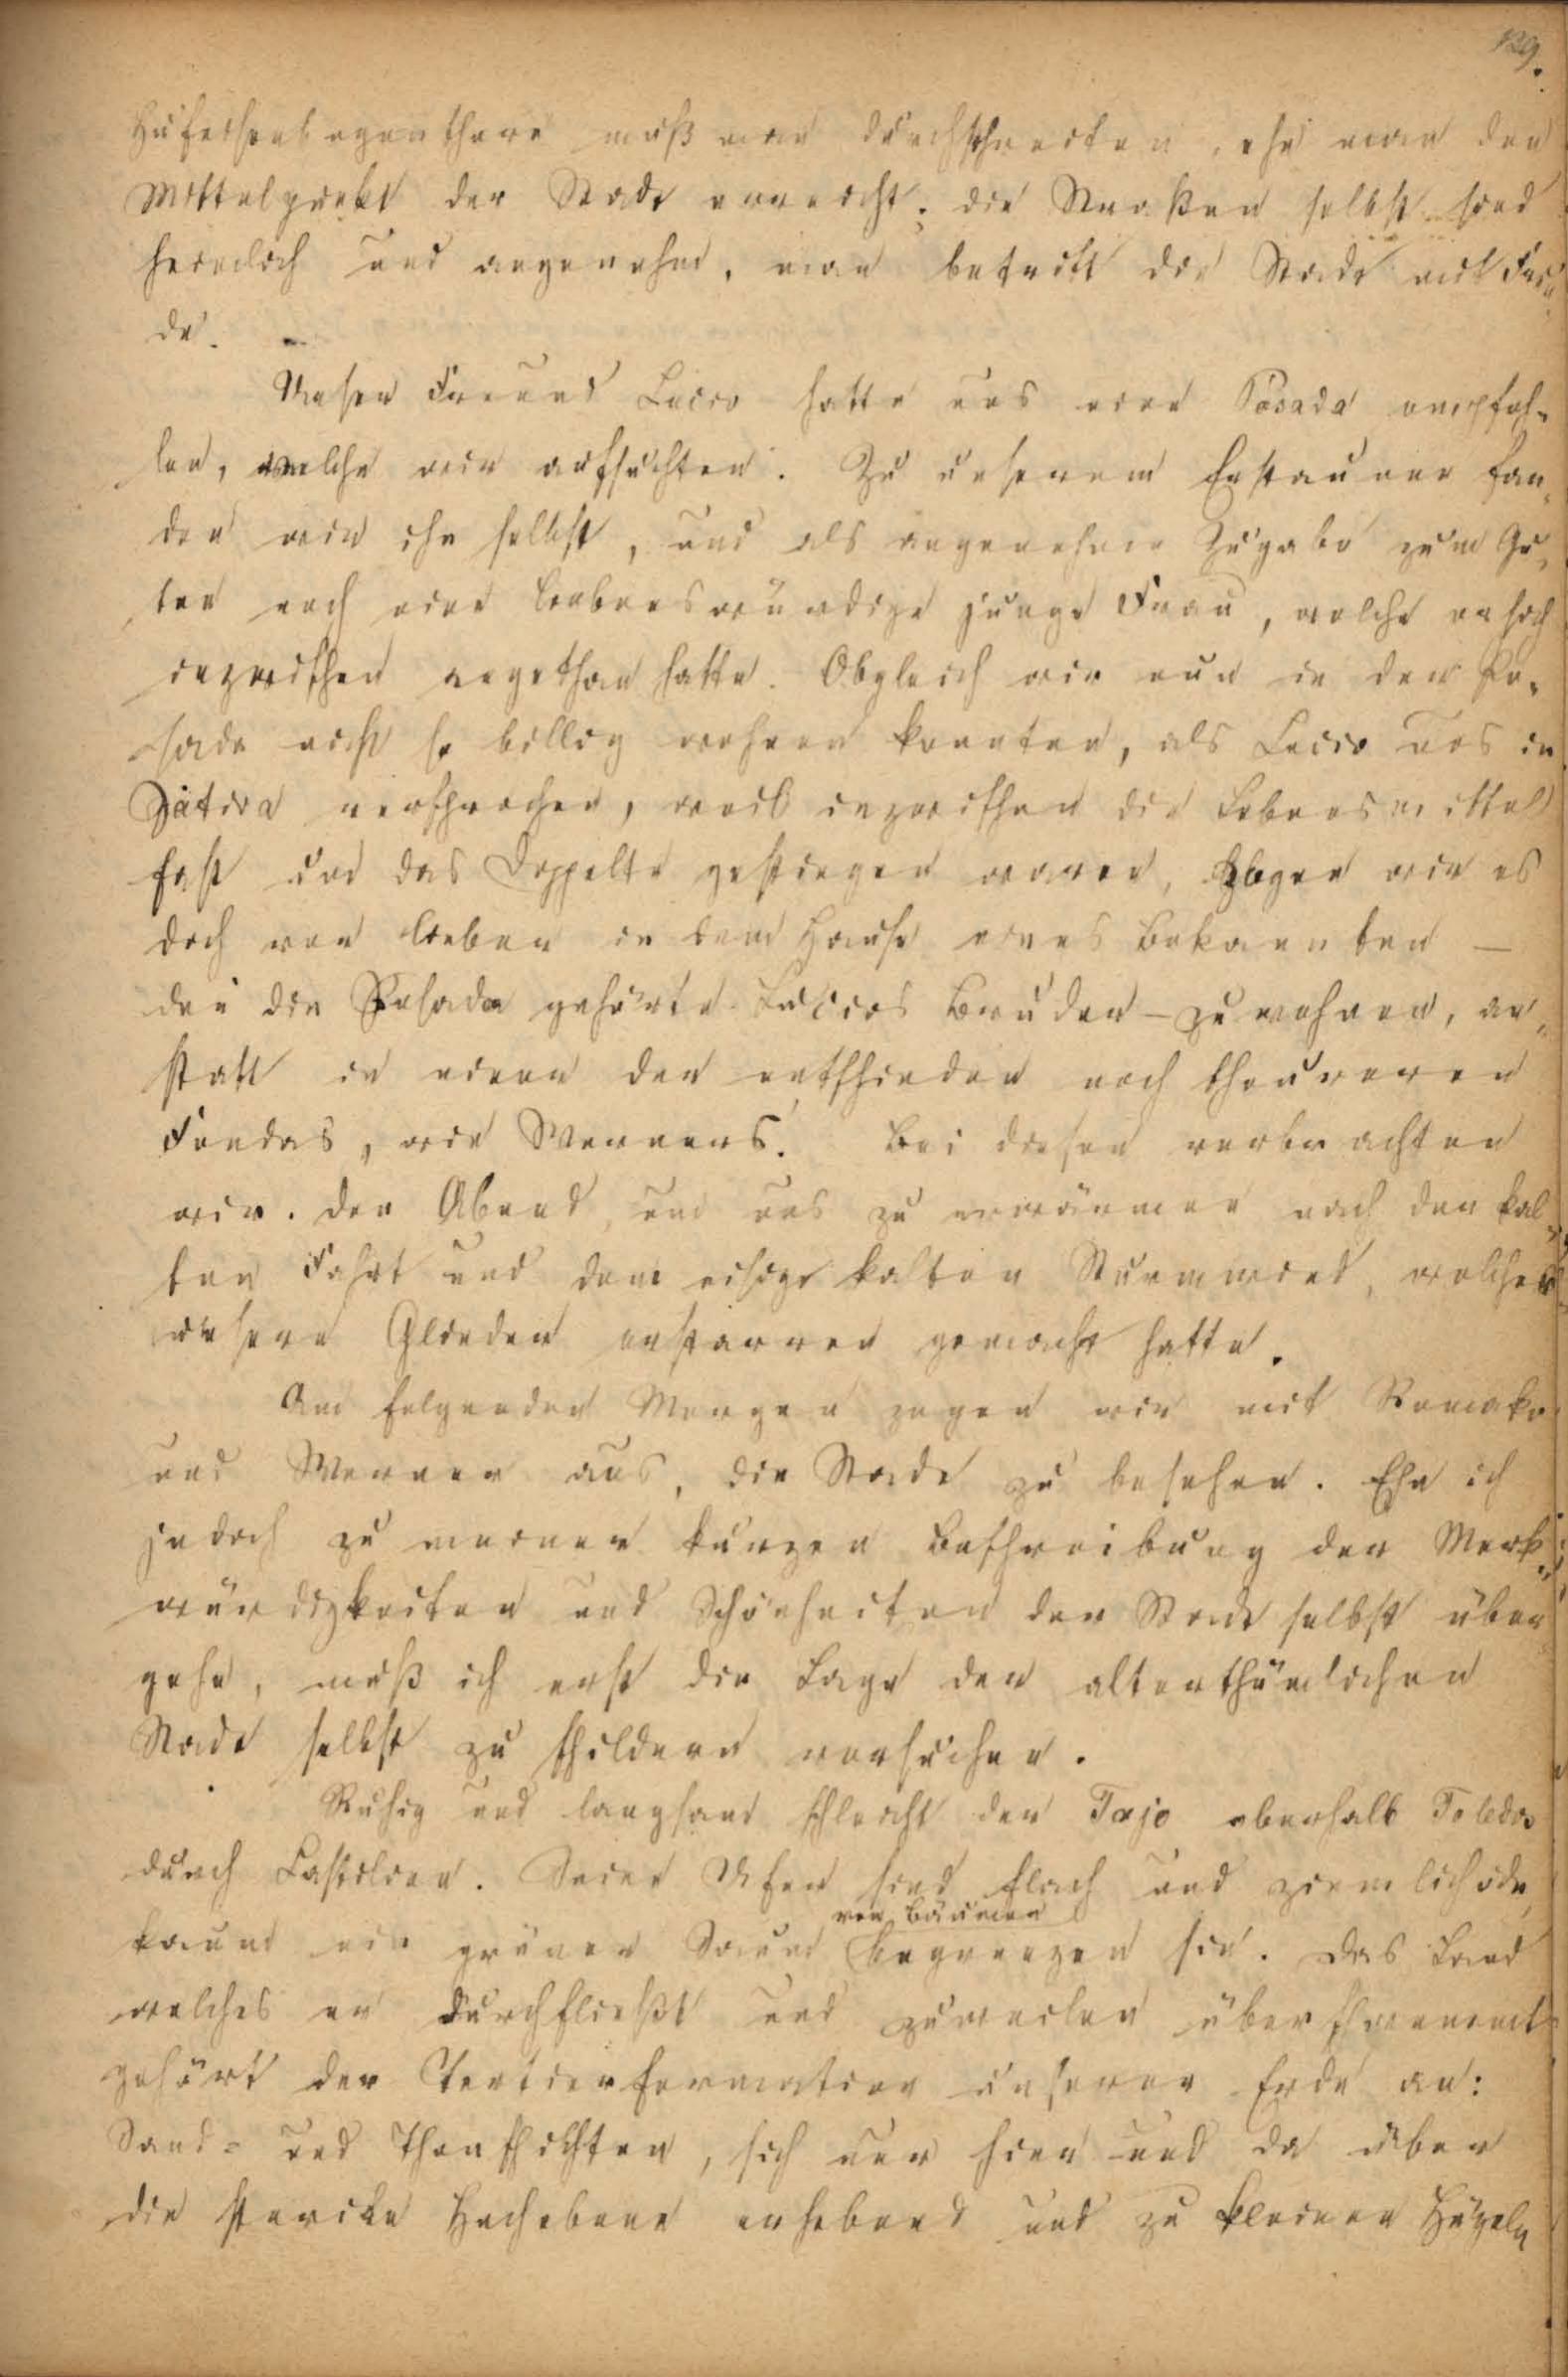 129.
Hufeisenbogenthore muß man durchschreiten, ehe man den
Mittelpunkt der Stadt erreicht; die Straßen selbst sind
heimlich und angenehm, man betritt die Stadt mit Freu-
de.
Unser Freund Lucio hatte uns eine Posada empfoh-
len, welche wir aufsuchten. Zu unserem Erstaunen fan-
den wir ihn selbst, und als angenehme Zugabe zum Gu-
ten noch eine liebenswürdige junge Frau, welche er sich
inzwischen angethan hatte. Obgleich wir nun in der Po-
sada nicht so billig wohnen konnten, als Lucio uns in
Játiva versprochen, weil inzwischen die Lebensmittel
fast um das Doppelte gestiegen waren, zogen wir es
doch vor lieber in dem Hause eines Bekannten –
denn die Posada gehörte Lucios Bruder – zu wohnen, an-
statt in einer der entschieden noch theureren
Fondas, wie Werners. Bei diesen verbrachten
wir den Abend, um uns zu erwärmen nach der kal-
ten Fahrt und dem eisige kalten Sturmwind, welcher
unsere Glieder erstarren gemacht hatte.
Am folgenden Morgen zogen wir mit Romako
und Werner aus, die Stadt zu besehen. Ehe ich
jedoch zu meiner kurzen Beschreibung der Merk-
würdigkeiten und Schönheiten der Stadt selbst über
gehe, muß ich erst die Lage der alterthümlichen
Stadt selbst zu schildern versuchen.
Ruhig und langsam schleicht der Tajo oberhalb Toledos
durch Castilien. Seine Ufer sind flach und ziemlich öde,
kaum ein grüner Saum von Bäumen begrenzen sie. Das Land
welches er durchfließt und zuweilen überschwemmt
gehört der Tertierformation unserer Erde an:
Sand- und Thonschichten, sich nur hier und da über
die sterile Hochebene erhebend und zu kleinen Hügeln